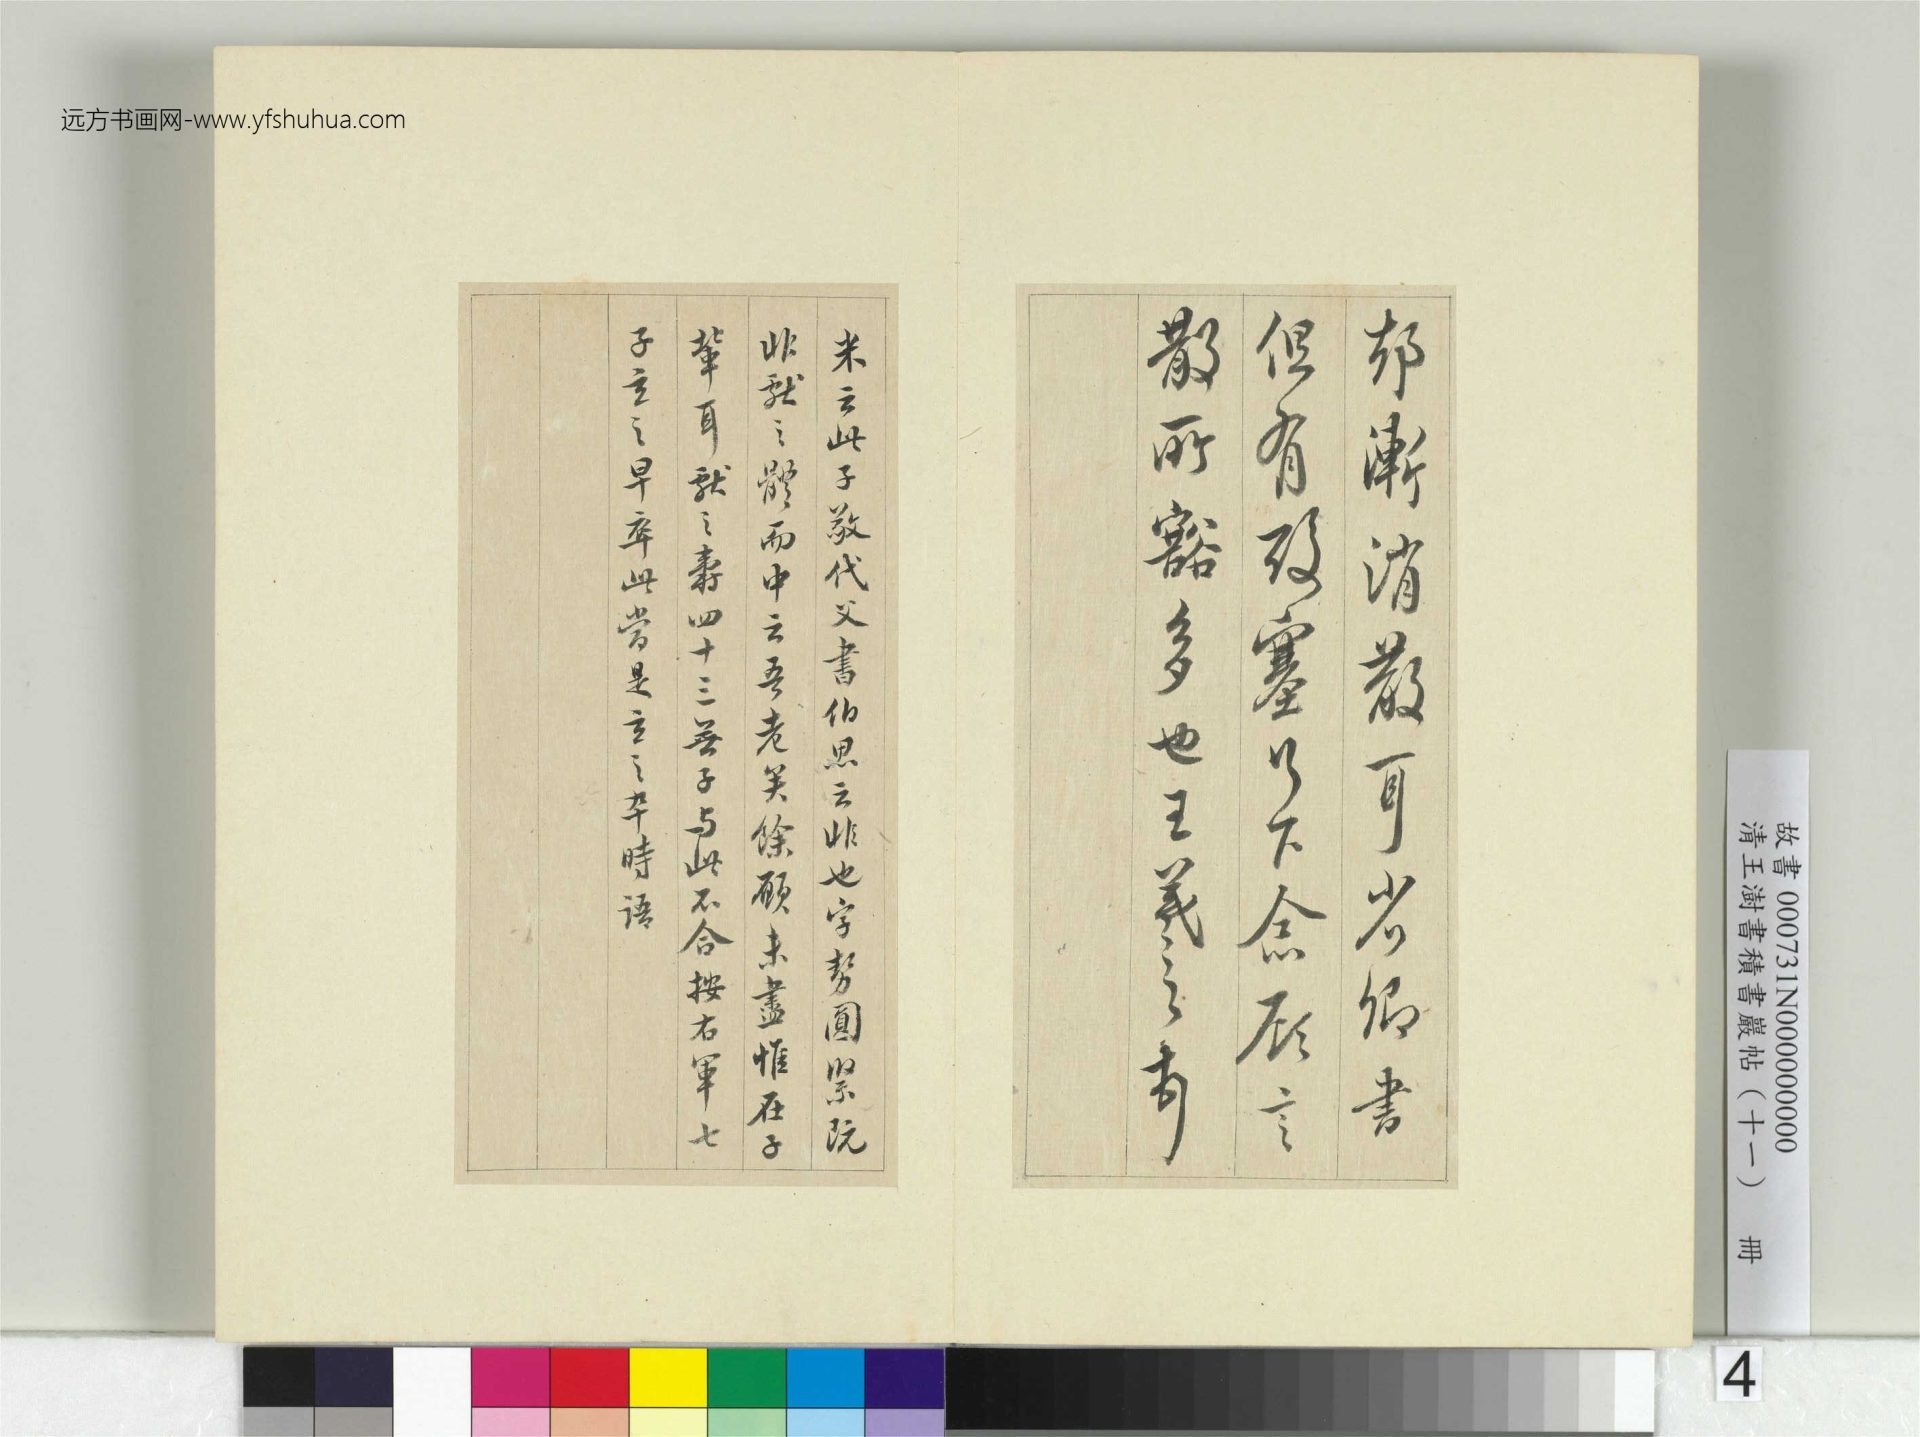 远方书画网-www.yfshuhua.com
却漸消散耳省卿書
但有改塞以下念顧言
散所豁多也王羲之頓
米云此子敬代父書伯思云非也字勢圓緊阮
非獻之體而中云吾老矣餘願未盡惟在子
輩耳獻之壽四十三無子与此不合按右軍七
子玄之早卒此當是玄之卒時語
故書 000731N000000000
清王澍書積書巖帖（十一） 冊
4